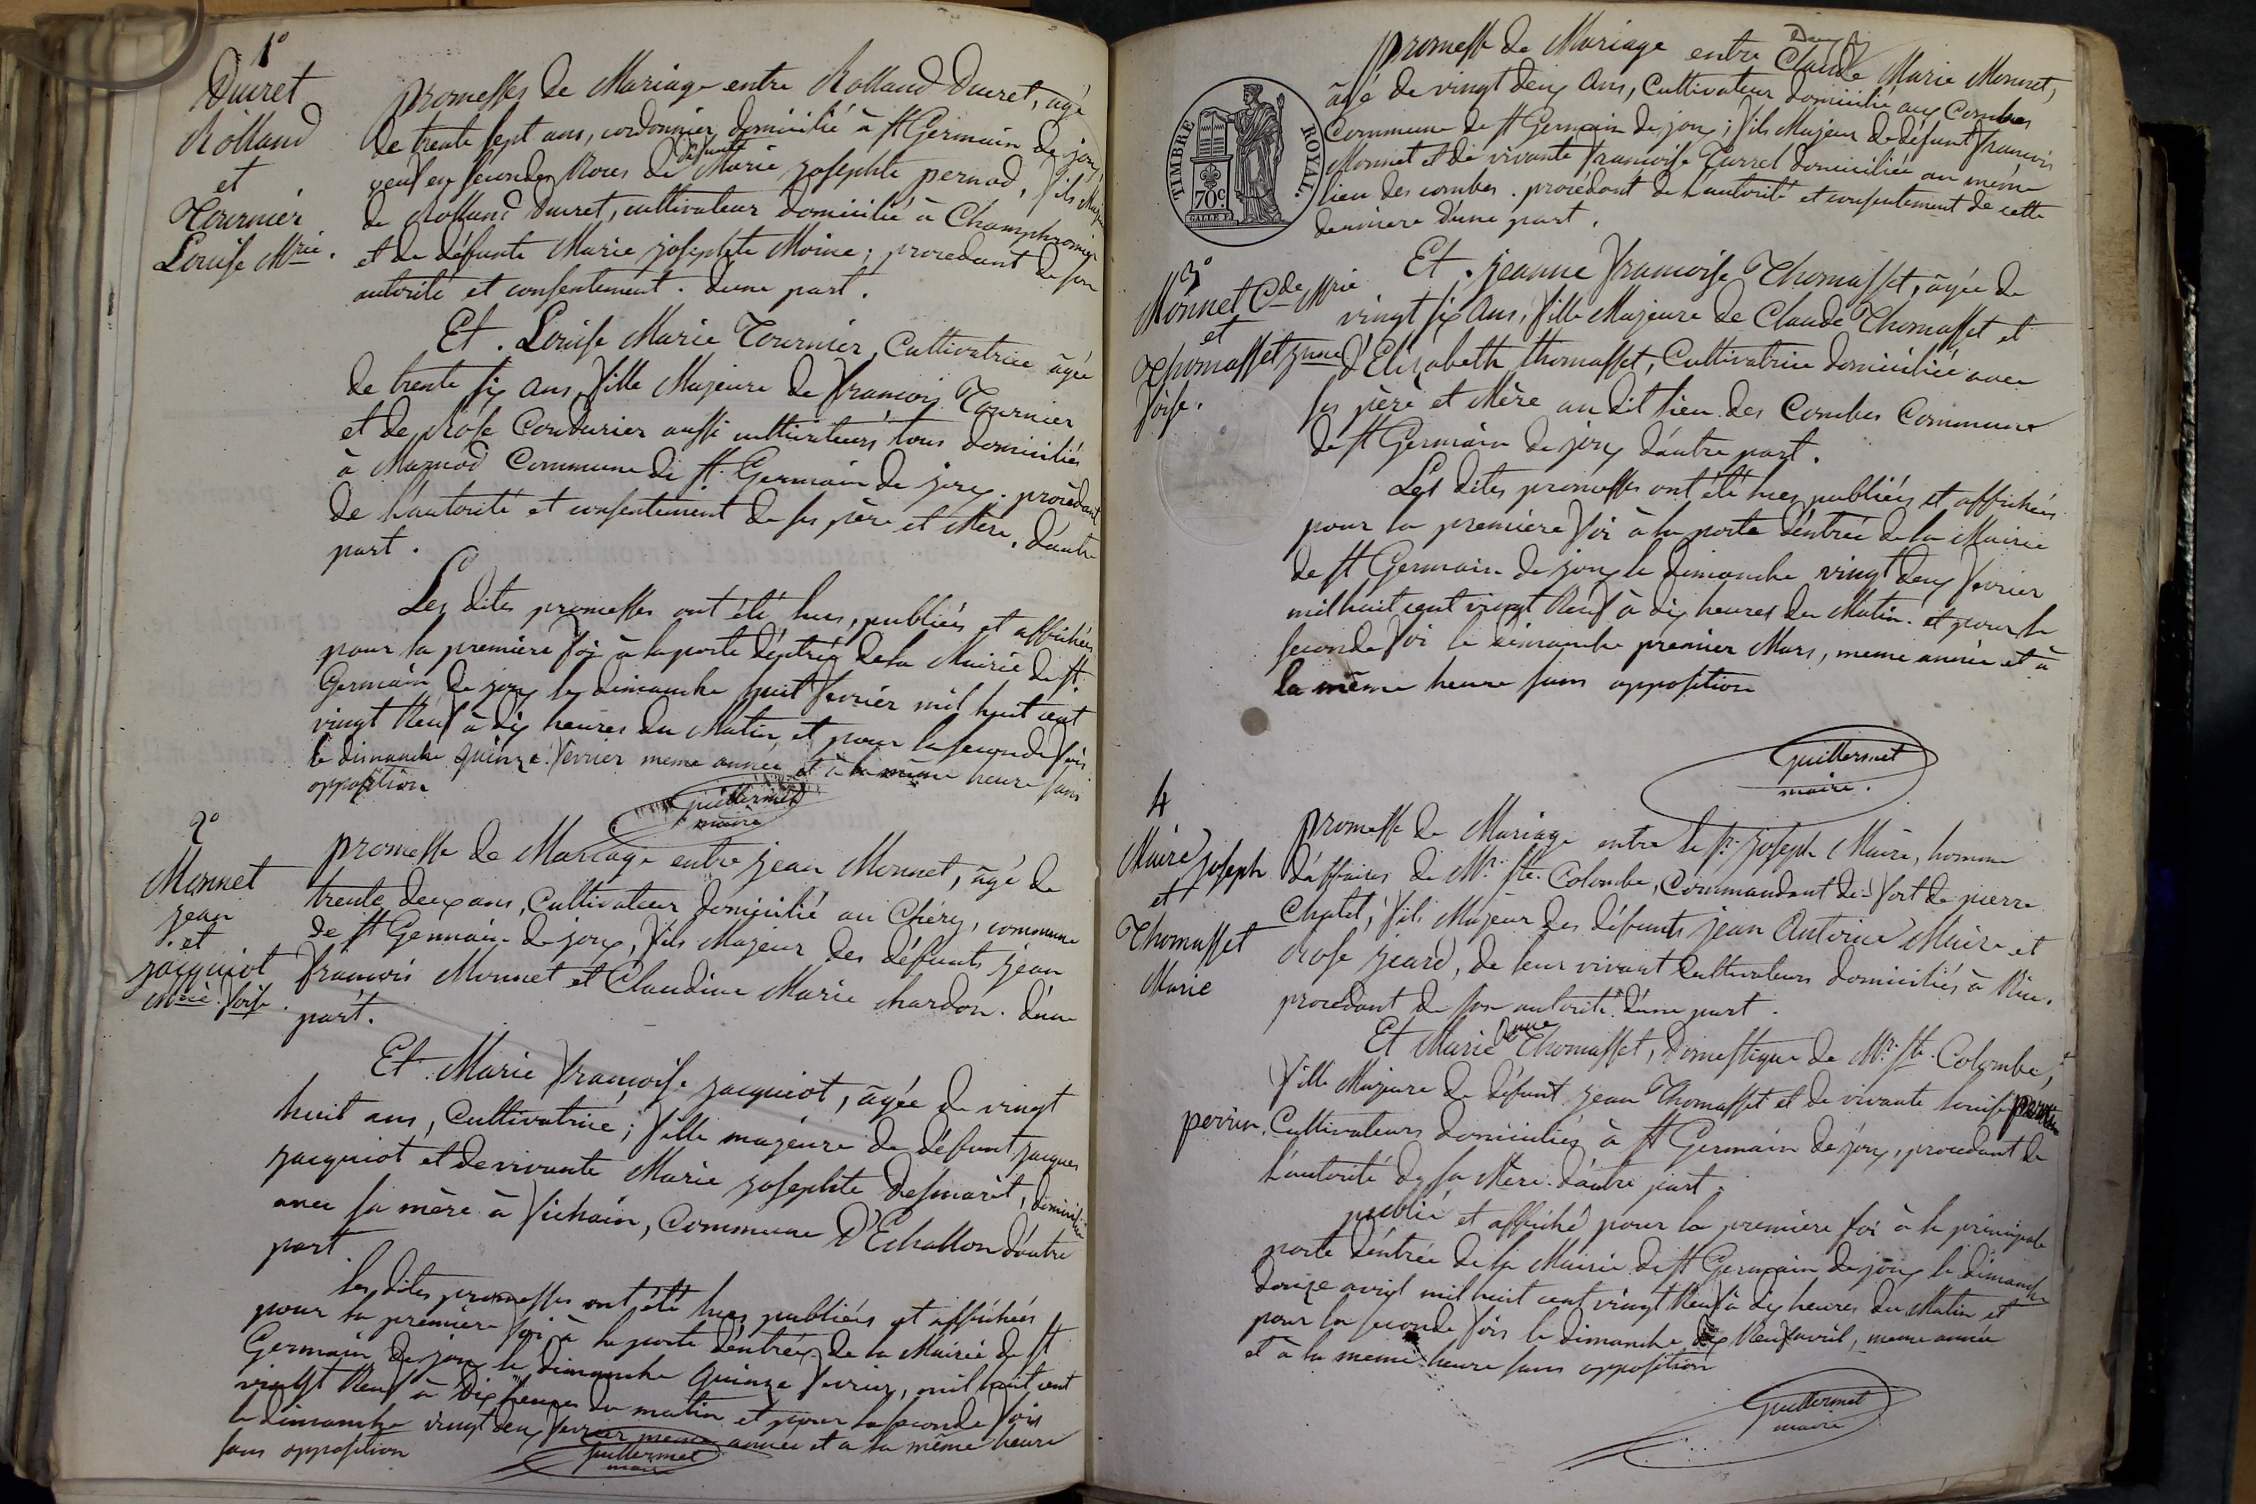 1°
Ducret
Rolland
et
Tournier
Louise Mrie.
promesses de Mariage entre Rolland Ducret, agé
de trente sept ans, cordonnier domicilié à St Germain de joux
veuf en secondes Noces de défunte Marie josephte pernod, fils Majeur
de Rolland Ducret, cultivateur domicilié à Champfromier
et de défunte Marie josephte Moine; procedant de son
autorité et consentement. d'une part.
Et. Louise Marie Tournier, Cultivatrice âgée
de trente six ans, fille Majeure de françois Tournier
et de Rose Couturier aussi cultivateurs tous domiciliés
à Marnod Commune de St Germain de joux. procèdant
de l'autorité et consentement de ses père et Mère. d'autre
part.
Les dites promesses ont été lues, publiées et affichées
pour la première foi à la porte d'entrée de la Mairie de St
Germain de joux le dimanche huit fevrier mil huit cent
vingt Neuf à dix heures du Matin, et pour la seconde fois
le dimanche quinze fevrier meme année et à la même heure sans
opposition
guillermet
maire
2°
Monnet
jean
et
jacquiot
Mrie. foise.
promesse de Mariage entre jean Monnet, âgé de
trente deux ans, Cultivateur domicilié au Chéry, commune
de St Germain de joux, fils Majeur des défunts jean
francois Monnet et Claudine Marie chardon. d'une
part.
Et Marie françoise jacquiot, âgée de vingt
huit ans, Cultivatrice; fille majeure de défunt jacques
jacquiot et de vivante Marie josephte Desmaret, domiciliée
avec sa mère à fichain, Commune D'Echallon d'autre
part
les dites promesses ont été lues publiées et affichées
pour la première foi à la porte d'entrée de la Mairie de St
Germain de joux le dimanche quinze fevrier, mil huit cent
vingt Neuf à dix heures du matin et pour la seconde fois
le dimanche vingt deux fevrier meme année et a la même heure
sans opposition
guillermet
maire
TIMBRE ROYAL.
70c
3°
Monnet Cde Mrie
et
Thomasset jnne
foise.
promesse de Mariage entre Claude Marie Monnet,
âgé de vingt deux Ans, Cultivateur domicilié aux Combes
Commune de St Germain de joux; fils Majeur de défunt francois
Monnet et de vivante francoise Turrel domiciliée au même
lieu des combes. procédant de l'autorité et consentement de cette
derniere d'une part.
Et. jeanne francoise Thomasset, âgée de
vingt six Ans, fille Majeure de Claude Thomasset et
d'Elizabeth thomasset, Cultivatrice domiciliée avec
ses père et Mère au dit lieu des Combes Commune
de St Germain de joux d'autre part.
Les dites promesses ont été lues publiées et affichées
pour la premiere foi à la porte d'entrée de la Mairie
de St Germain de joux le dimanche vingt deux fevrier
mil huit cent vingt Neuf à dix heures du Matin. et pour la
seconde foi le dimanche premier Mars, meme année et à
la même heure sans opposition
guillermet
maire.
4
Maire joseph
et
Thomasset
Marie
promesse de Mariage entre le Sr joseph Maire, homme
d'affaires de Mr. Ste. Colombe, Commandant du fort de pierre
Chatel, fils Majeur des défunts jean Antoine Maire et
Rose jeard, de leur vivant Cultivateurs domiciliés à
procédant de son autorité d'une part.
Et Marie jnne Thomasset, Domestique de Mr. Ste. Colombe,
fille Majeure de défunt jean Thomasset et de vivante louise
perrin, Cultivateurs domiciliés à St Germain de joux, procedant de
l'autorité de sa Mère d'autre part.
publié et affiché pour la premiere foi à la principale
porte d'entrée de la Mairie de St Germain de joux le dimanche
douze avril mil huit cent vingt Neuf à dix heures du Matin et
pour la seconde fois le dimanche dix Neuf avril, meme année
et à la meme heure sans opposition
guillermet
maire